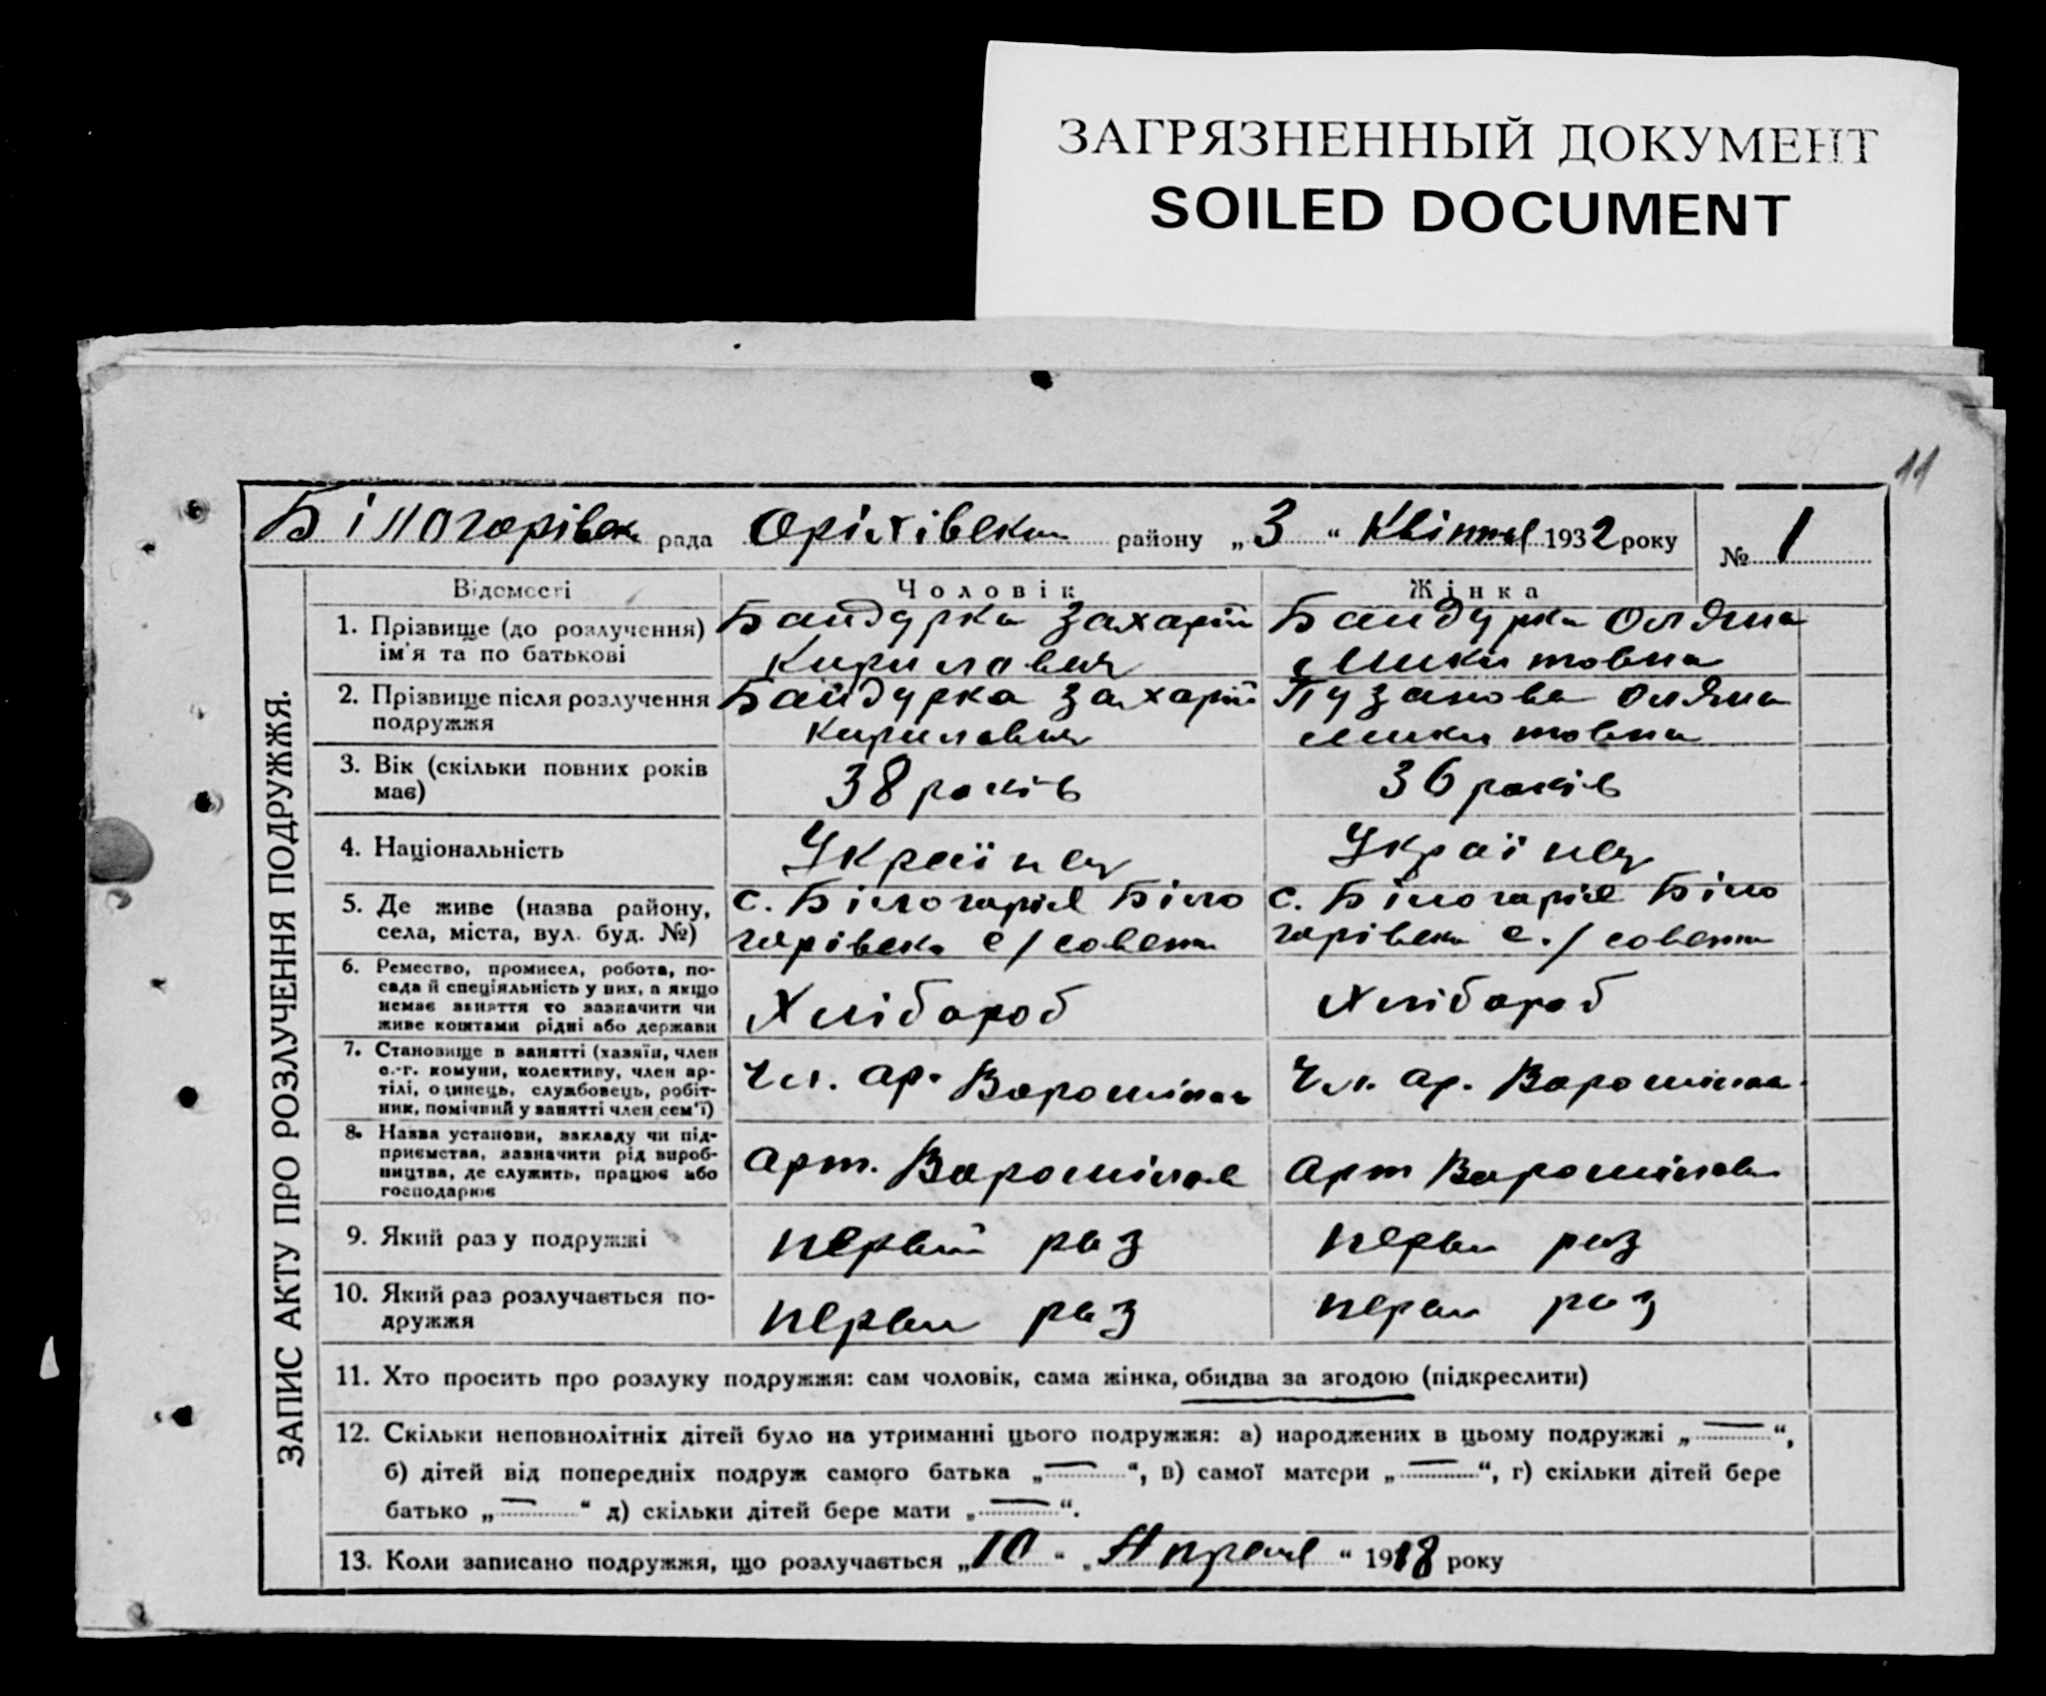 ЗАГРЯЗНЕННЫЙ ДОКУМЕНТ
SOILED DOCUMENT
11
Білогорівськ рада Оріхівськ району „3“ Квітня 1932 року № 1
ЗАПИС АКТУ ПРО РОЗЛУЧЕННЯ ПОДРУЖЖЯ.
Відомості Чоловік Жінка
1. Прізвище (до розлучення) Байдурка Захарій Байдурка
ім'я та по батькові Кирилович Микитовна
2. Прізвище після розлучення Байдурка Захарій Пузанова
подружжя Кирилович Микитовна
3. Вік (скільки повних років 38 років 36 років
має)
4. Національність Українец Українец
5. Де живе (назва району, с. Білогоріє Біло с. Білогоріє Біло
села, міста, вул. буд. №) горівськ с/совета горівськ с./совета
6. Ремество, промисел, робота, по-
сада й спеціяльність у них, а якщо Хлібороб Хлібороб
немає заняття то зазначити чи
живе коштами рідні або держави
7. Становище в занятті (хазяїн, член
с.-г. комуни, колективу, член ар- Чл. ар. Ворошілова Чл. ар. Ворошілова
тілі, одинець, службовець, робіт-
ник, помічний у занятті член сем'ї)
8. Назва установи, закладу чи під-
приємства, зазначити рід вироб- Арт. Ворошілов Арт Ворошілова
ництва, де служить, працює або
господарює
9. Який раз у подружжі первий раз перви раз
10. Який раз розлучається по- перви раз перви раз
дружжя
11. Хто просить про розлуку подружжя: сам чоловік, сама жінка, обидва за згодою (підкреслити)
12. Скільки неповнолітніх дітей було на утриманні цього подружжя: а) народжених в цьому подружжі „—“,
б) дітей від попередніх подруж самого батька „—“, в) самої матери „—“, г) скільки дітей бере
батько „—“ д) скільки дітей бере мати „—“.
13. Коли записано подружжя, що розлучається „10“ „Апреля“ 1918 року